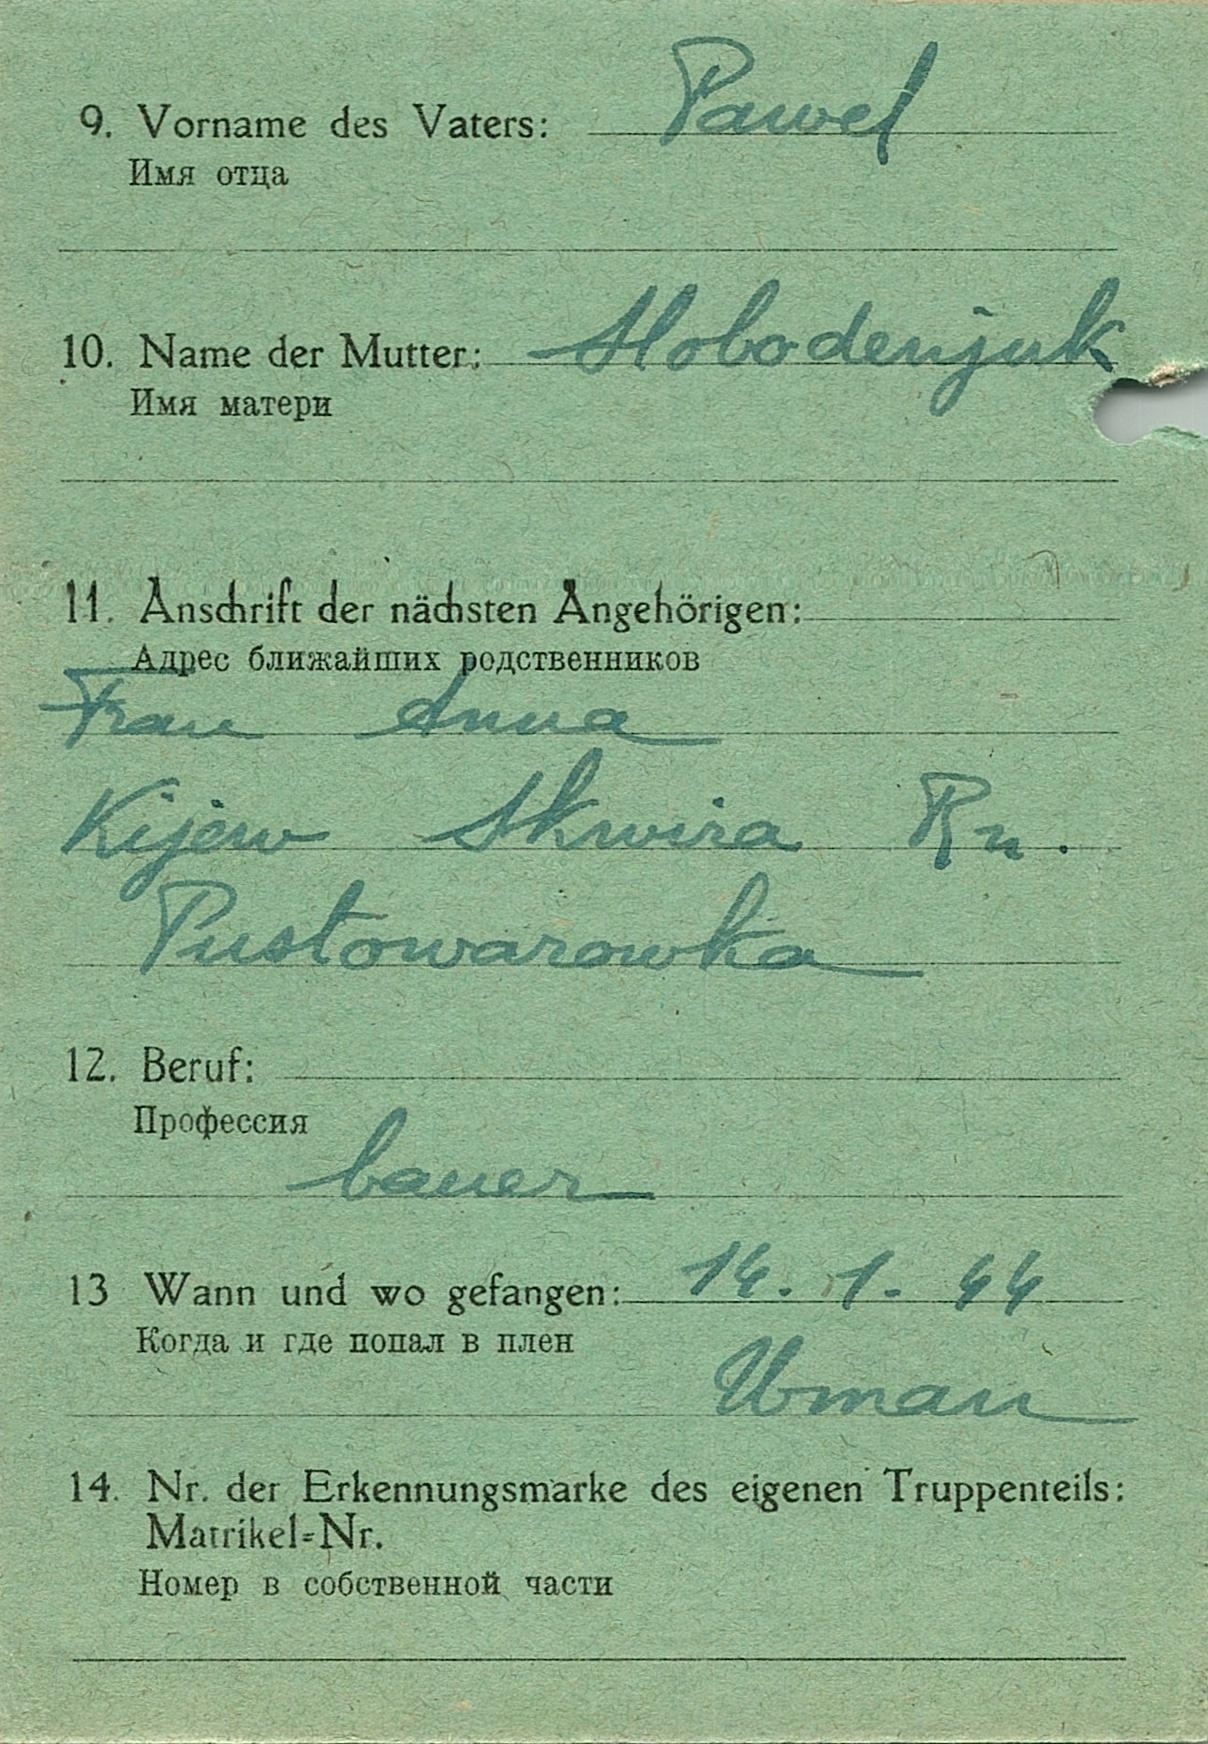 9. Vorname des Vaters: Pawel
Имя отца
10. Name der Mutter: Slobodenjuk
Имя матери
11. Anschrift der nächsten Angehörigen:
Адрес ближайших родственников
Frau Anna
Kijew Skwira Rn.
Pustowarowka
12. Beruf:
Профессия
bauer
13 Wann und wo gefangen: 14. 1. 44
Когда и где попал в плен
Uman
14. Nr. der Erkennungsmarke des eigenen Truppenteils:
Matrikel=Nr.
Номер в собственной части